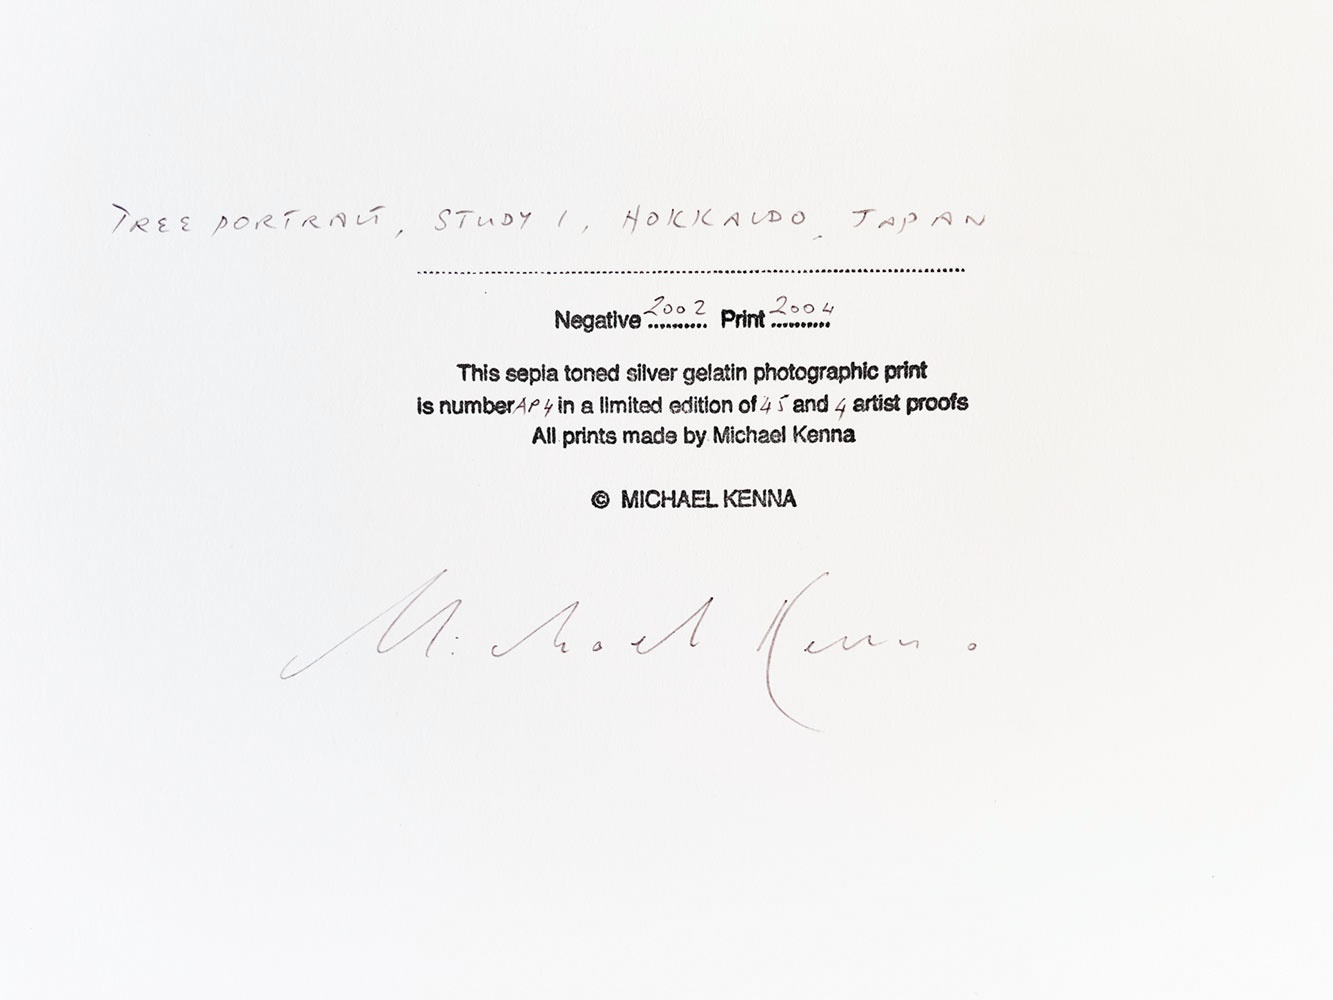 TREE PORTRAIT, STUDY 1, HOKKAIDO, JAPAN
Negative 2002 Print 2004
This sepia toned silver gelatin photographic print
is number AP4 in a limited edition of 45 and 4 artist proofs
All prints made by Michael Kenna
© MICHAEL KENNA
Michael Kenna